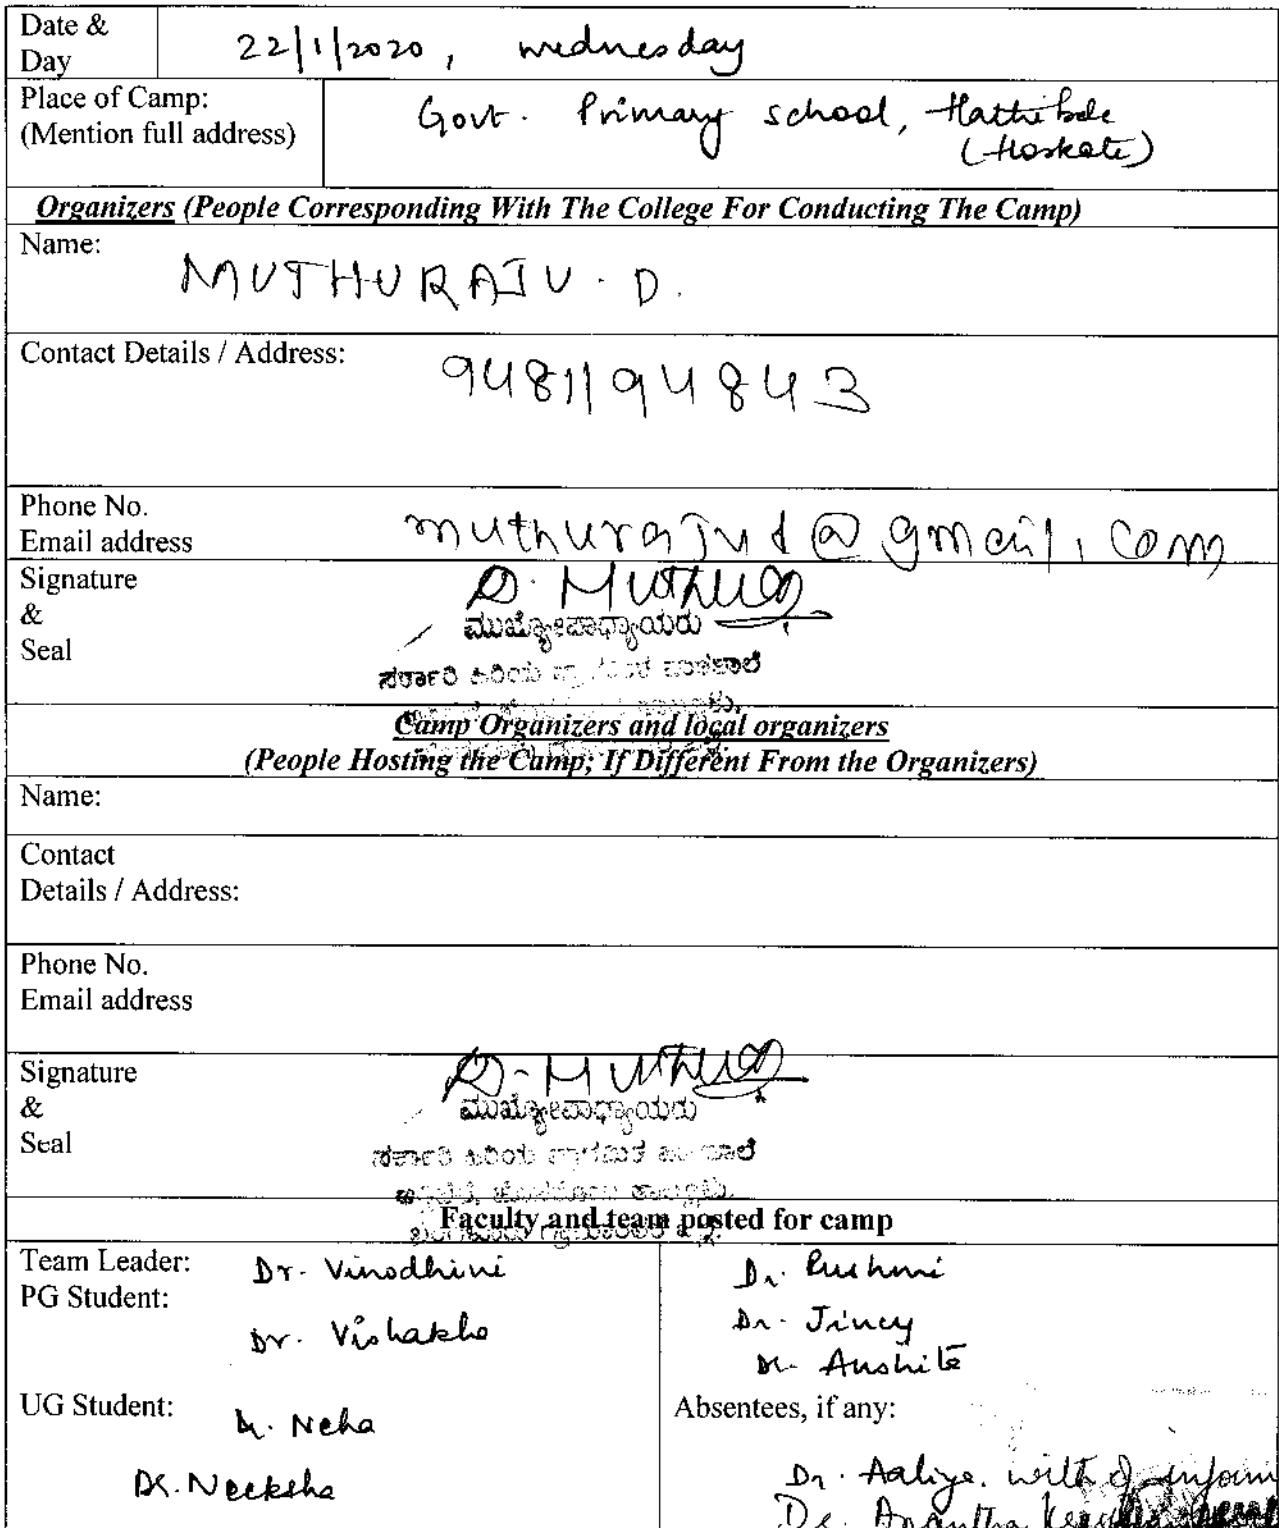 Date & Day 22/1/2020, wednesday
Place of Camp: Govt. Primary school, Hattibele
(Mention full address) (Hoskote)
Organizers (People Corresponding With The College For Conducting The Camp)
Name: MUTHURAJU. D.
Contact Details / Address: 9481194843
Phone No.
Email address muthurajud@gmail.com
Signature & Seal D. Muthu
ಮುಖ್ಯೋಪಾಧ್ಯಾಯರು
ಸರ್ಕಾರಿ ಹಿರಿಯ
Camp Organizers and local organizers
(People Hosting the Camp; If Different From the Organizers)
Name:
Contact
Details / Address:
Phone No.
Email address
Signature & Seal D. Muthu
ಮುಖ್ಯೋಪಾಧ್ಯಾಯರು
ಸರ್ಕಾರಿ ಹಿರಿಯ
Faculty and team posted for camp
Team Leader: Dr. Vinodhini
PG Student:
Dr. Vishakha
UG Student: Dr. Neha
Dr. Neeksha
Dr.
Dr. Jincy
Dr. Anshita
Absentees, if any:
Dr. Aaliya.
Dr. Anantha